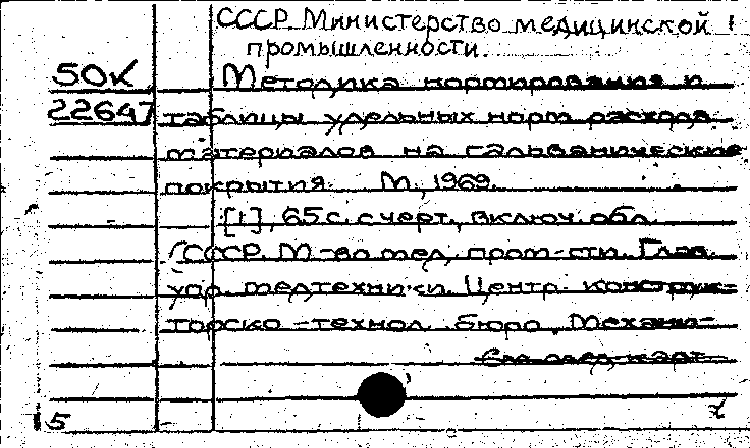 СССР. Министерство медицинской 1
промышленности.
50К Методика нормирования и
22647 таблицы удельных норм расхода
материалов на гальванические
покрытия. М., 1969.
[1], 65 с. с черт., включ. обл.
(СССР. М-во мед. пром-сти. Глав.
упр. медтехники. Центр. конструк-
торско-технол. бюро. Механи-
См. след. карт.
15